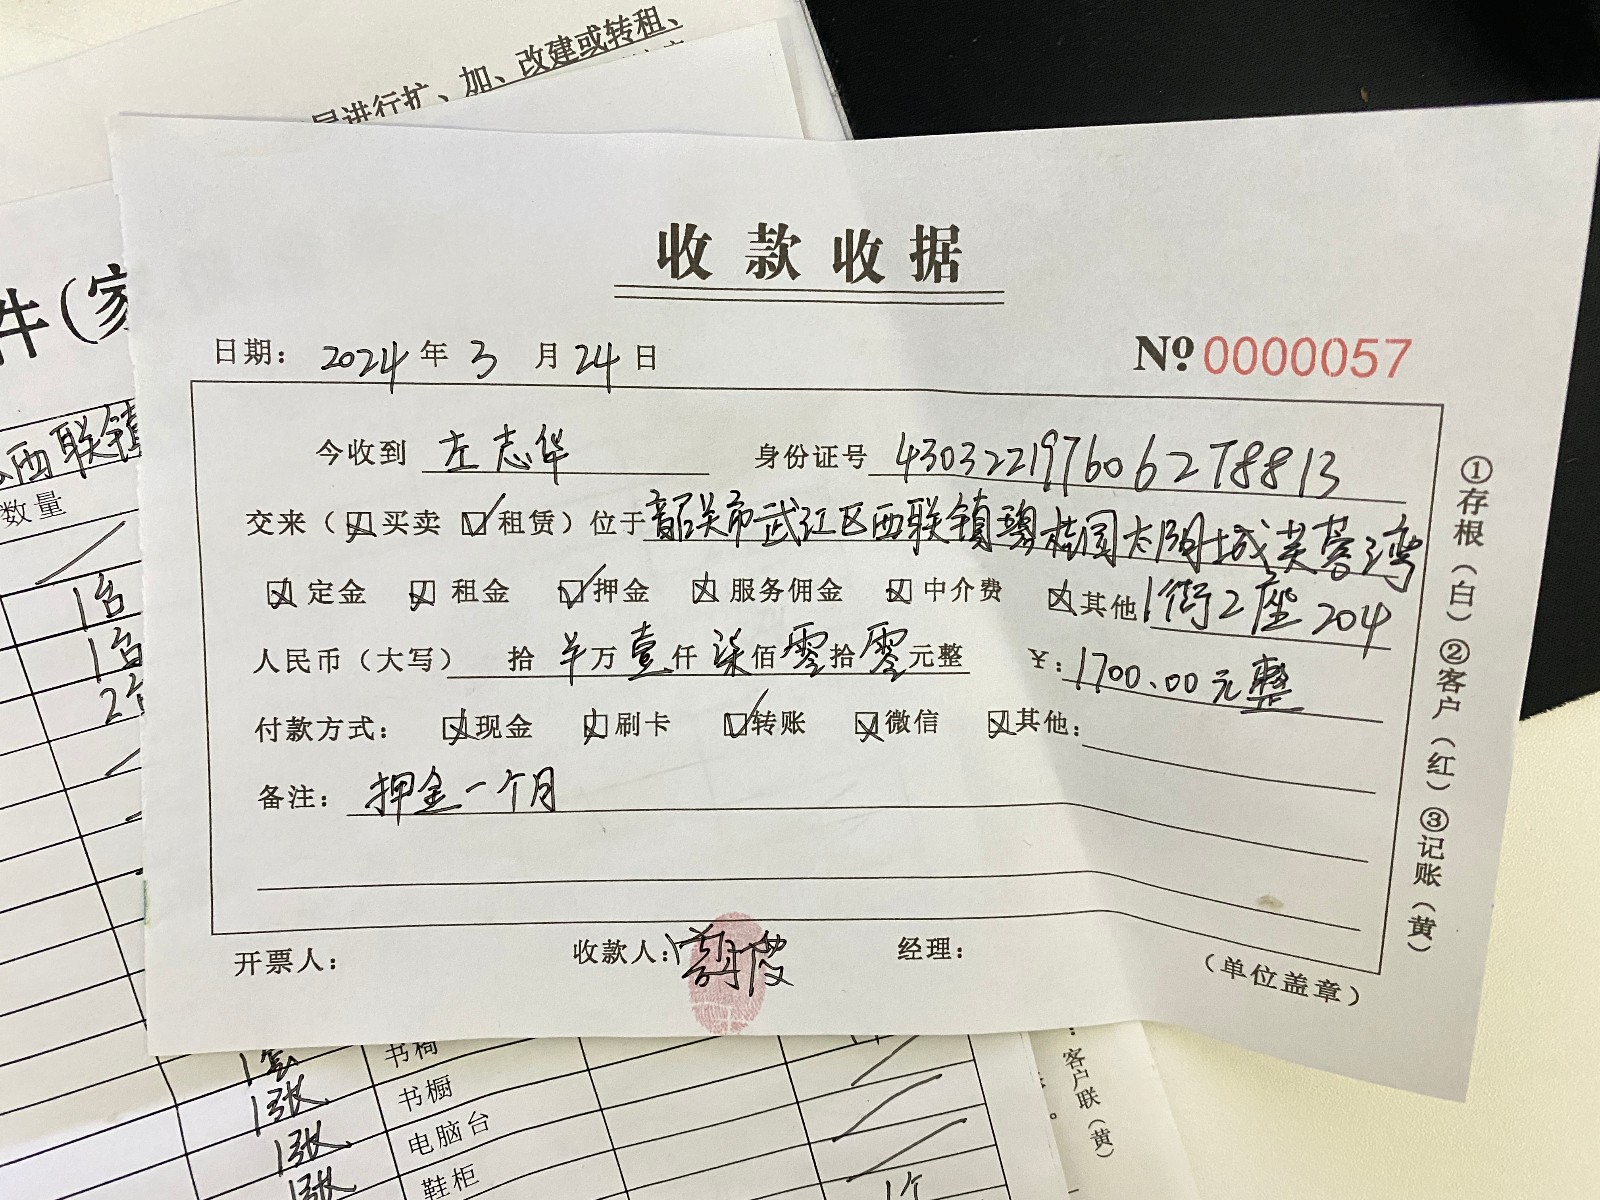 进行扩、加、改建或转租、
件(家
西联镇
数量
1台
1台
2台
收款收据
日期： 2024 年 3 月 24 日
№ 0000057
今收到 左志华 身份证号 430322197606278813
交来（☒买卖 ☑租赁）位于韶关市武江区西联镇碧桂园太阳城芙蓉湾
☒定金 ☒租金 ☑押金 ☒服务佣金 ☒中介费 ☒其他 1街2座204
人民币（大写） 拾 羊万 壹仟 柒佰 零拾 零元整 ¥：1700.00元整
付款方式： ☒现金 ☒刷卡 ☑转账 ☒微信 ☒其他：
备注： 押金一个月
开票人： 收款人： 经理： （单位盖章）
①存根（白）②客户（红）③记账（黄）
1套 书椅
1张 书橱
1张 电脑台
1张 鞋柜
1个
：客户联（黄）